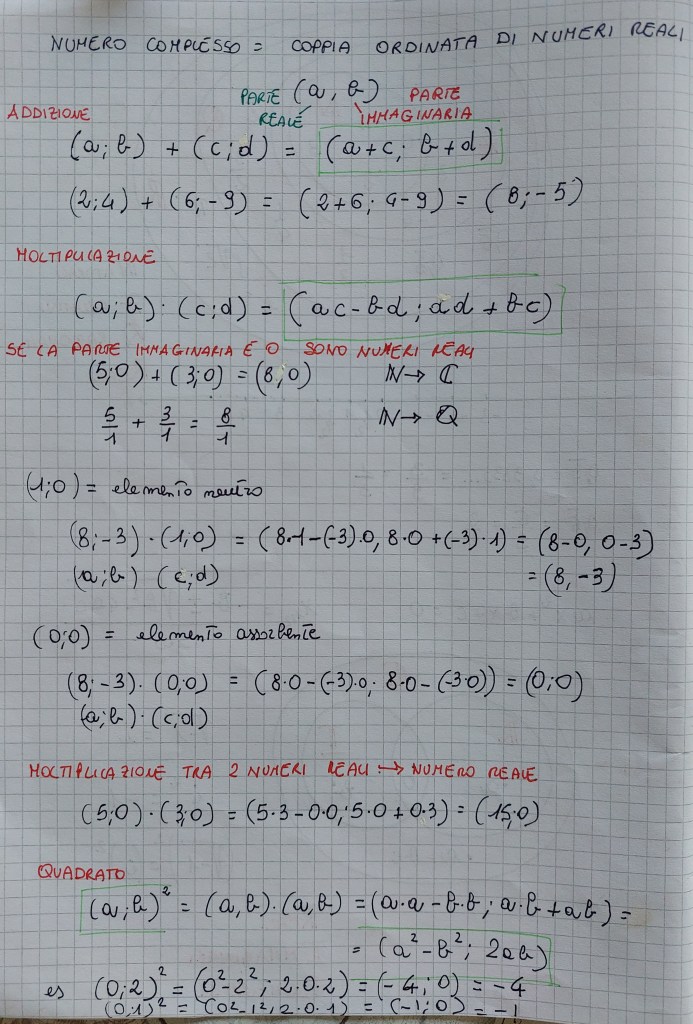 NUMERO COMPLESSO = COPPIA ORDINATA DI NUMERI REALI
PARTE REALE (a, b) PARTE IMMAGINARIA
ADDIZIONE
(a; b) + (c; d) = (a+c; b+d)
(2;4) + (6;-9) = (2+6; 4-9) = (8;-5)
MOLTIPLICAZIONE
(a; b) · (c; d) = (ac - bd; ad + bc)
SE LA PARTE IMMAGINARIA È 0 SONO NUMERI REALI
(5;0) + (3;0) = (8,0) ℕ → ℂ
5/1 + 3/1 = 8/1 ℕ → ℚ
(1;0) = elemento neutro
(8;-3) · (1,0) = (8·1-(-3)·0, 8·0 +(-3)·1) = (8-0, 0-3)
(a;b) (c;d) = (8,-3)
(0;0) = elemento assorbente
(8;-3) · (0,0) = (8·0-(-3)·0; 8·0-(-3·0)) = (0;0)
(a;b) · (c;d)
MOLTIPLICAZIONE TRA 2 NUMERI REALI → NUMERO REALE
(5;0) · (3;0) = (5·3-0·0; 5·0+0·3) = (15;0)
QUADRATO
(a;b)² = (a,b)·(a,b) = (a·a-b·b; a·b+ab) =
= (a²-b²; 2ab)
es (0;2)² = (0²-2²; 2·0·2) = (-4;0) = -4
(0;1)² = (0²-1², 2·0·1) = (-1;0) = -1